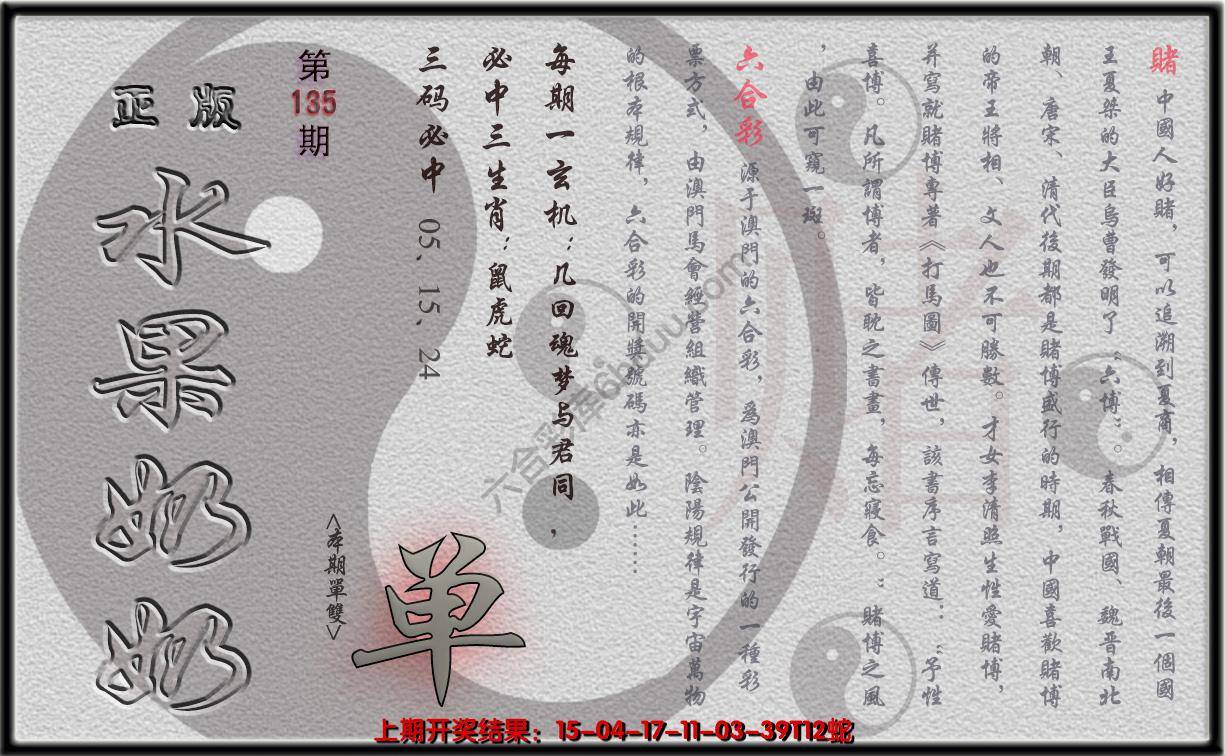 賭 中國人好賭，可以追溯到夏商，相傳夏朝最後一個國
王夏桀的大臣烏曹發明了“六博”。春秋戰國、魏晋南北
朝、唐宋、清代後期都是賭博盛行的時期，中國喜歡賭博
的帝王將相、文人也不可勝數。才女李清照生性愛賭博，
并寫就賭博專著《打馬圖》傳世，該書序言寫道：“予性
喜博。凡所謂博者，皆耽之書畫，每忘寢食。”賭博之風
，由此可窺一斑。
六合彩 源于澳門的六合彩，爲澳門公開發行的一種彩
票方式，由澳門馬會經營組織管理。陰陽規律是宇宙萬物
的根本規律，六合彩的開獎號碼亦是如此……
每期一玄机：几回魂梦与君同，
必中三生肖：鼠虎蛇
三码必中 05、15、24
第
135
期
正版
水果奶奶
<本期單雙>
单
賭
六合彩库6hduu.com
上期开奖结果：15-04-17-11-03-39T12蛇